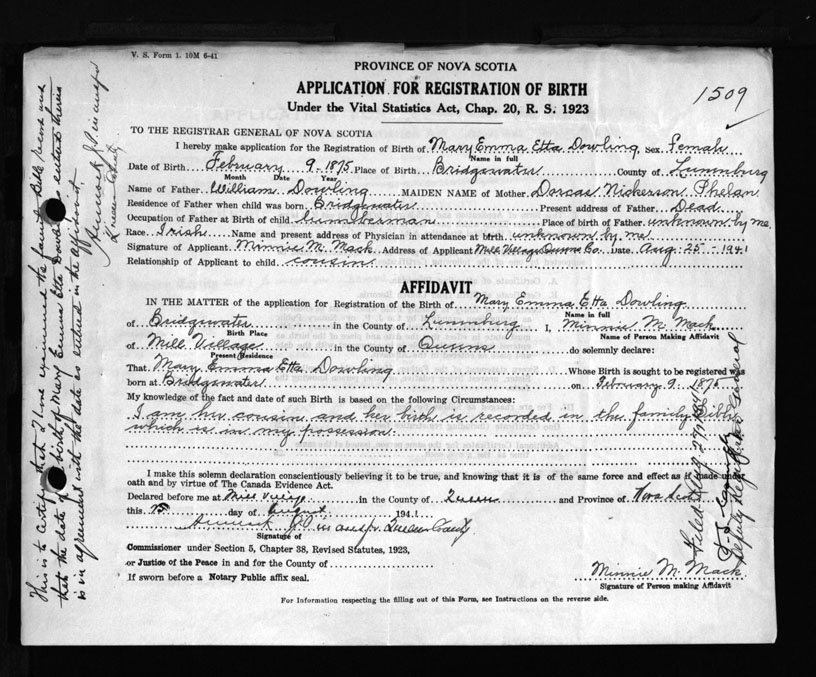 V. S. Form 1. 10M 6-41
PROVINCE OF NOVA SCOTIA
APPLICATION FOR REGISTRATION OF BIRTH
Under the Vital Statistics Act, Chap. 20, R. S. 1923
1509
TO THE REGISTRAR GENERAL OF NOVA SCOTIA
I hereby make application for the Registration of Birth of Mary Emma Etta Dowling Sex Female
Name in full
Date of Birth February 9 - 1875 Place of Birth Bridgewater County of Lunenburg
Month Date Year
Name of Father William Dowling MAIDEN NAME of Mother Dorcas Nickerson Phelan
Residence of Father when child was born Bridgewater Present address of Father Dead
Occupation of Father at Birth of child Lumberman Place of Birth of Father unknown by me
Race Irish Name and present address of Physician in attendance at birth unknown by me
Signature of Applicant Minnie M. Mack Address of Applicant Mill Village Queens Co. Date Aug - 25 - 1941
Relationship of Applicant to child cousin
AFFIDAVIT
IN THE MATTER of the application for Registration of the Birth of Mary Emma Etta Dowling
Name in full
of Bridgewater in the County of Lunenburg I, Minnie M. Mack
Birth Place Name of Person Making Affidavit
of Mill Village in the County of Queens do solemnly declare:
Present Residence
That Mary Emma Etta Dowling Whose Birth is sought to be registered was
born at Bridgewater on February 9 - 1875
My knowledge of the fact and date of such Birth is based on the following Circumstances:
I am her cousin and her birth is recorded in the family Bible
which is in my possession.
I make this solemn declaration conscientiously believing it to be true, and knowing that it is of the same force and effect as if made under
oath and by virtue of The Canada Evidence Act.
Declared before me at Mill Village in the County of Queens and Province of Nova Scotia
this 25 day of August 1941
J.P. in and for Queens County
Signature of
Commissioner under Section 5, Chapter 38, Revised Statutes, 1923,
or Justice of the Peace in and for the County of
If sworn before a Notary Public affix seal.
Minnie M. Mack
Signature of Person making Affidavit
For Information respecting the filling out of this Form, see Instructions on the reverse side.
This is to Certify that I have examined the family Bible record and
that the date of birth of Mary Emma Etta Dowling as entered therein
is in agreement with the date as entered in the affidavit
J.P. in and for
Queens County
Filed Aug 27, 1941
Deputy Registrar General